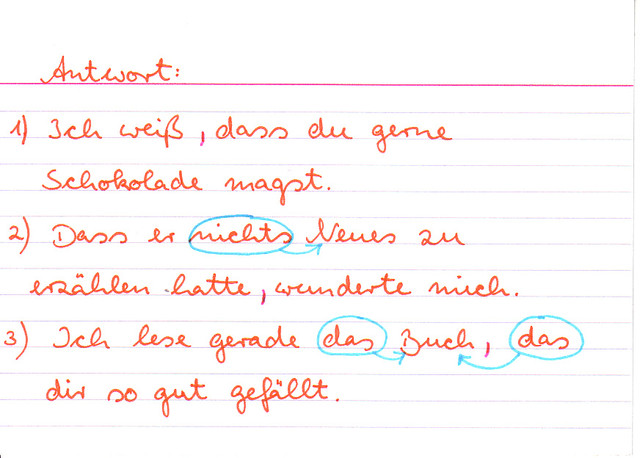 Antwort:
1) Ich weiß, dass du gerne
Schokolade magst.
2) Dass er nichts Neues zu
erzählen hatte, wunderte mich.
3) Ich lese gerade das Buch, das
dir so gut gefällt.